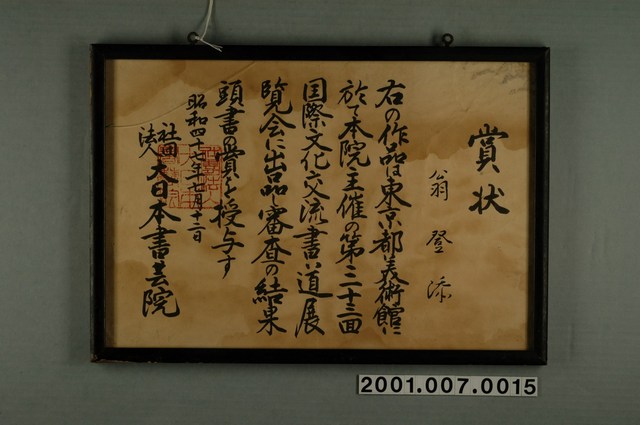 賞状
翁登添
右の作品は東京都美術館に
於て本院主催の第二十三回
国際文化交流書道展
覧会に出品し審査の結果
頭書の賞を授与す
昭和四十七年七月十二日
社団法人 大日本書芸院
2001.007.0015